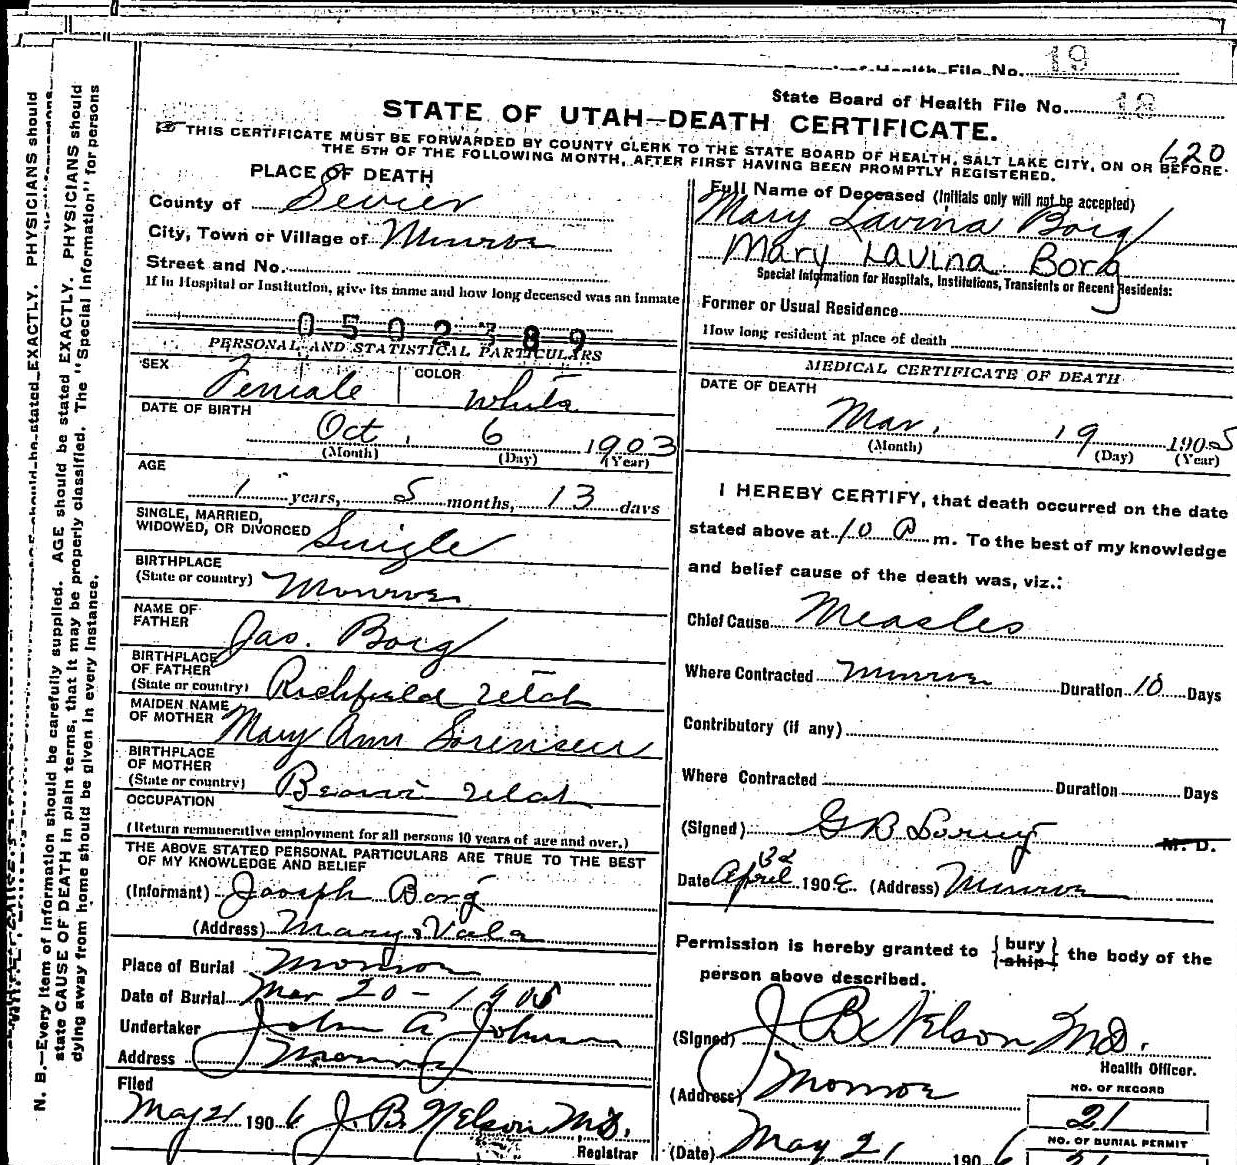 of Health File No. 19
State Board of Health File No. 18
STATE OF UTAH—DEATH CERTIFICATE.
620
THIS CERTIFICATE MUST BE FORWARDED BY COUNTY CLERK TO THE STATE BOARD OF HEALTH, SALT LAKE CITY, ON OR BEFORE
THE 5TH OF THE FOLLOWING MONTH, AFTER FIRST HAVING BEEN PROMPTLY REGISTERED.
PLACE OF DEATH
County of Sevier
City, Town or Village of Monroe
Street and No.
If in Hospital or Institution, give its name and how long deceased was an Inmate
0502389
PERSONAL AND STATISTICAL PARTICULARS
SEX Female COLOR White
DATE OF BIRTH
Oct. 6 1903
(Month) (Day) (Year)
AGE
1 years, 5 months, 13 days
SINGLE, MARRIED,
WIDOWED, OR DIVORCED Single
BIRTHPLACE
(State or country) Monroe
NAME OF
FATHER Jas. Borg
BIRTHPLACE
OF FATHER
(State or country) Richfield Utah
MAIDEN NAME
OF MOTHER Mary Ann Sorensen
BIRTHPLACE
OF MOTHER
(State or country) Beaver Utah
OCCUPATION
(Return remunerative employment for all persons 10 years of age and over.)
THE ABOVE STATED PERSONAL PARTICULARS ARE TRUE TO THE BEST
OF MY KNOWLEDGE AND BELIEF
(Informant) Joseph Borg
(Address) Marysvale
Place of Burial Monroe
Date of Burial Mar 20-1905
Undertaker John A Johnson
Address Monroe
Filed
May 21 1906 J. B. Nelson M.D.
Registrar
Full Name of Deceased (Initials only will not be accepted)
Mary Lavina Borg
Mary Lavina Borg
Special Information for Hospitals, Institutions, Transients or Recent Residents:
Former or Usual Residence
How long resident at place of death
MEDICAL CERTIFICATE OF DEATH
DATE OF DEATH
Mar. 19 1905
(Month) (Day) (Year)
I HEREBY CERTIFY, that death occurred on the date
stated above at 10 P m. To the best of my knowledge
and belief cause of the death was, viz.:
Chief Cause Measles
Where Contracted Monroe Duration 10 Days
Contributory (if any)
Where Contracted Duration Days
(Signed) G B M. D.
Date April 190 (Address) Monroe
Permission is hereby granted to { bury ship } the body of the
person above described.
(Signed) J. B. Nelson M.D.
Health Officer.
(Address) Monroe
NO. OF RECORD
21
(Date) May 21 1906
NO. OF BURIAL PERMIT
21
N. B.—Every item of information should be carefully supplied. AGE should be stated EXACTLY. PHYSICIANS should
state CAUSE OF DEATH in plain terms, that it may be properly classified. The "Special Information" for persons
dying away from home should be given in every instance.
should be stated EXACTLY. PHYSICIANS should